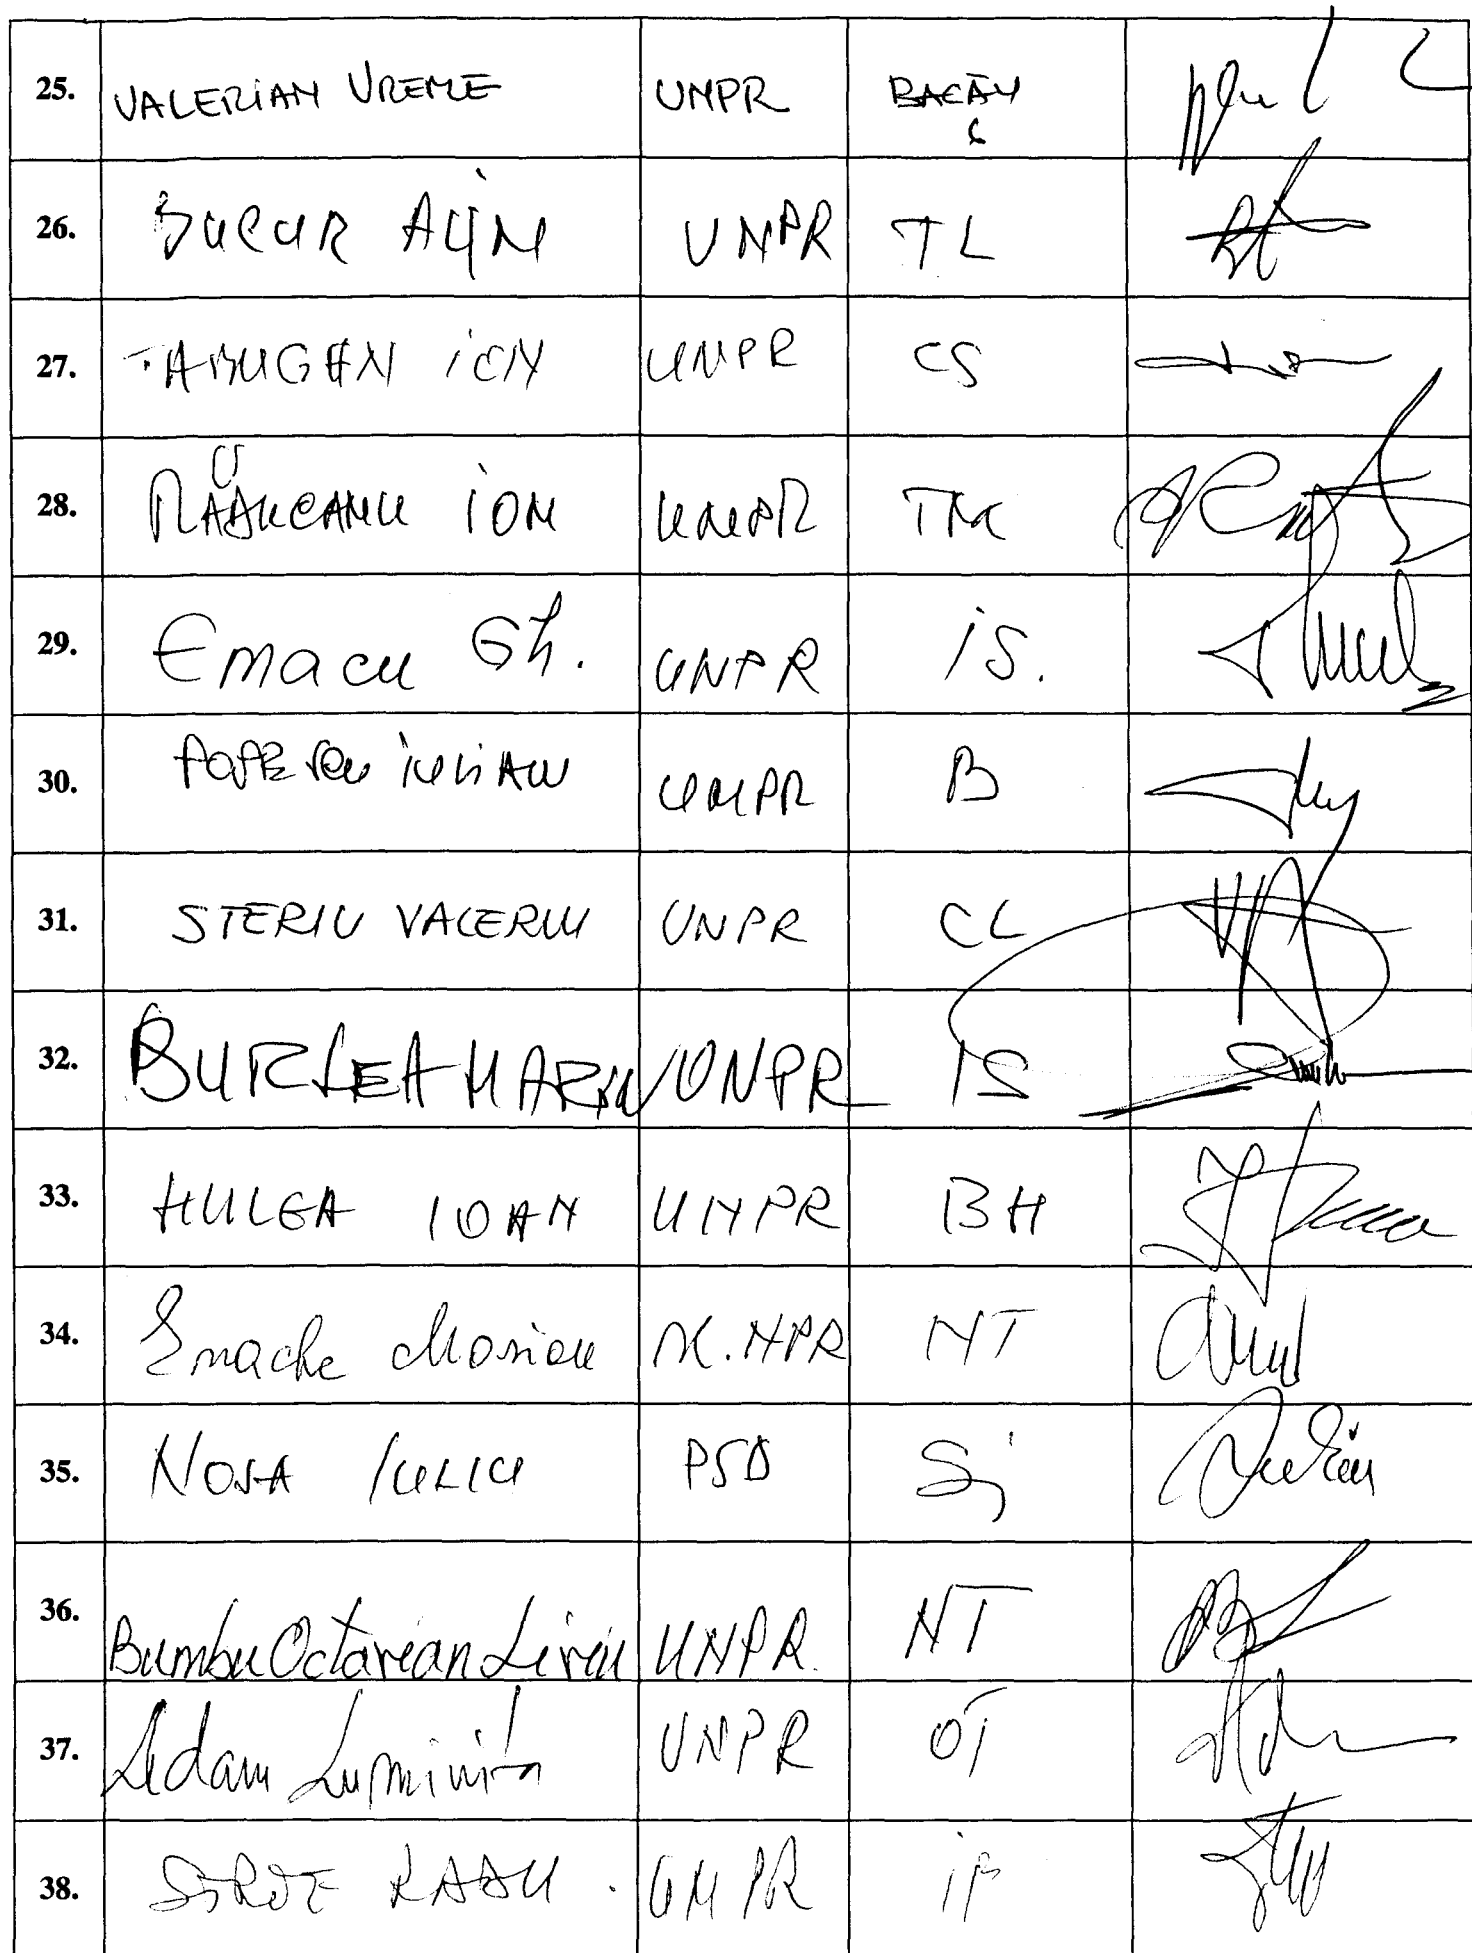 25. VALERIAN VREME UNPR BACĂU
6
26. BUCUR ALIN UNPR TL
27. TABUGAN ION UNPR CS
28. RĂDUCANU ION UNPR
29. Emacu Gh. UNPR IS.
30. POPESCU IULIAN UNPR B
31. STERIU VALERIU UNPR CL
32. BURLEA MARIN UNPR IS
33. HULEA IOAN UNPR BH
34. Enache Marian U.NPR NT
35. NOSA IULIU PSD SJ
36. Bumbu Octavian Liviu UNPR. NT
37. Adam Luminița UNPR OT
38. RADU UNPR